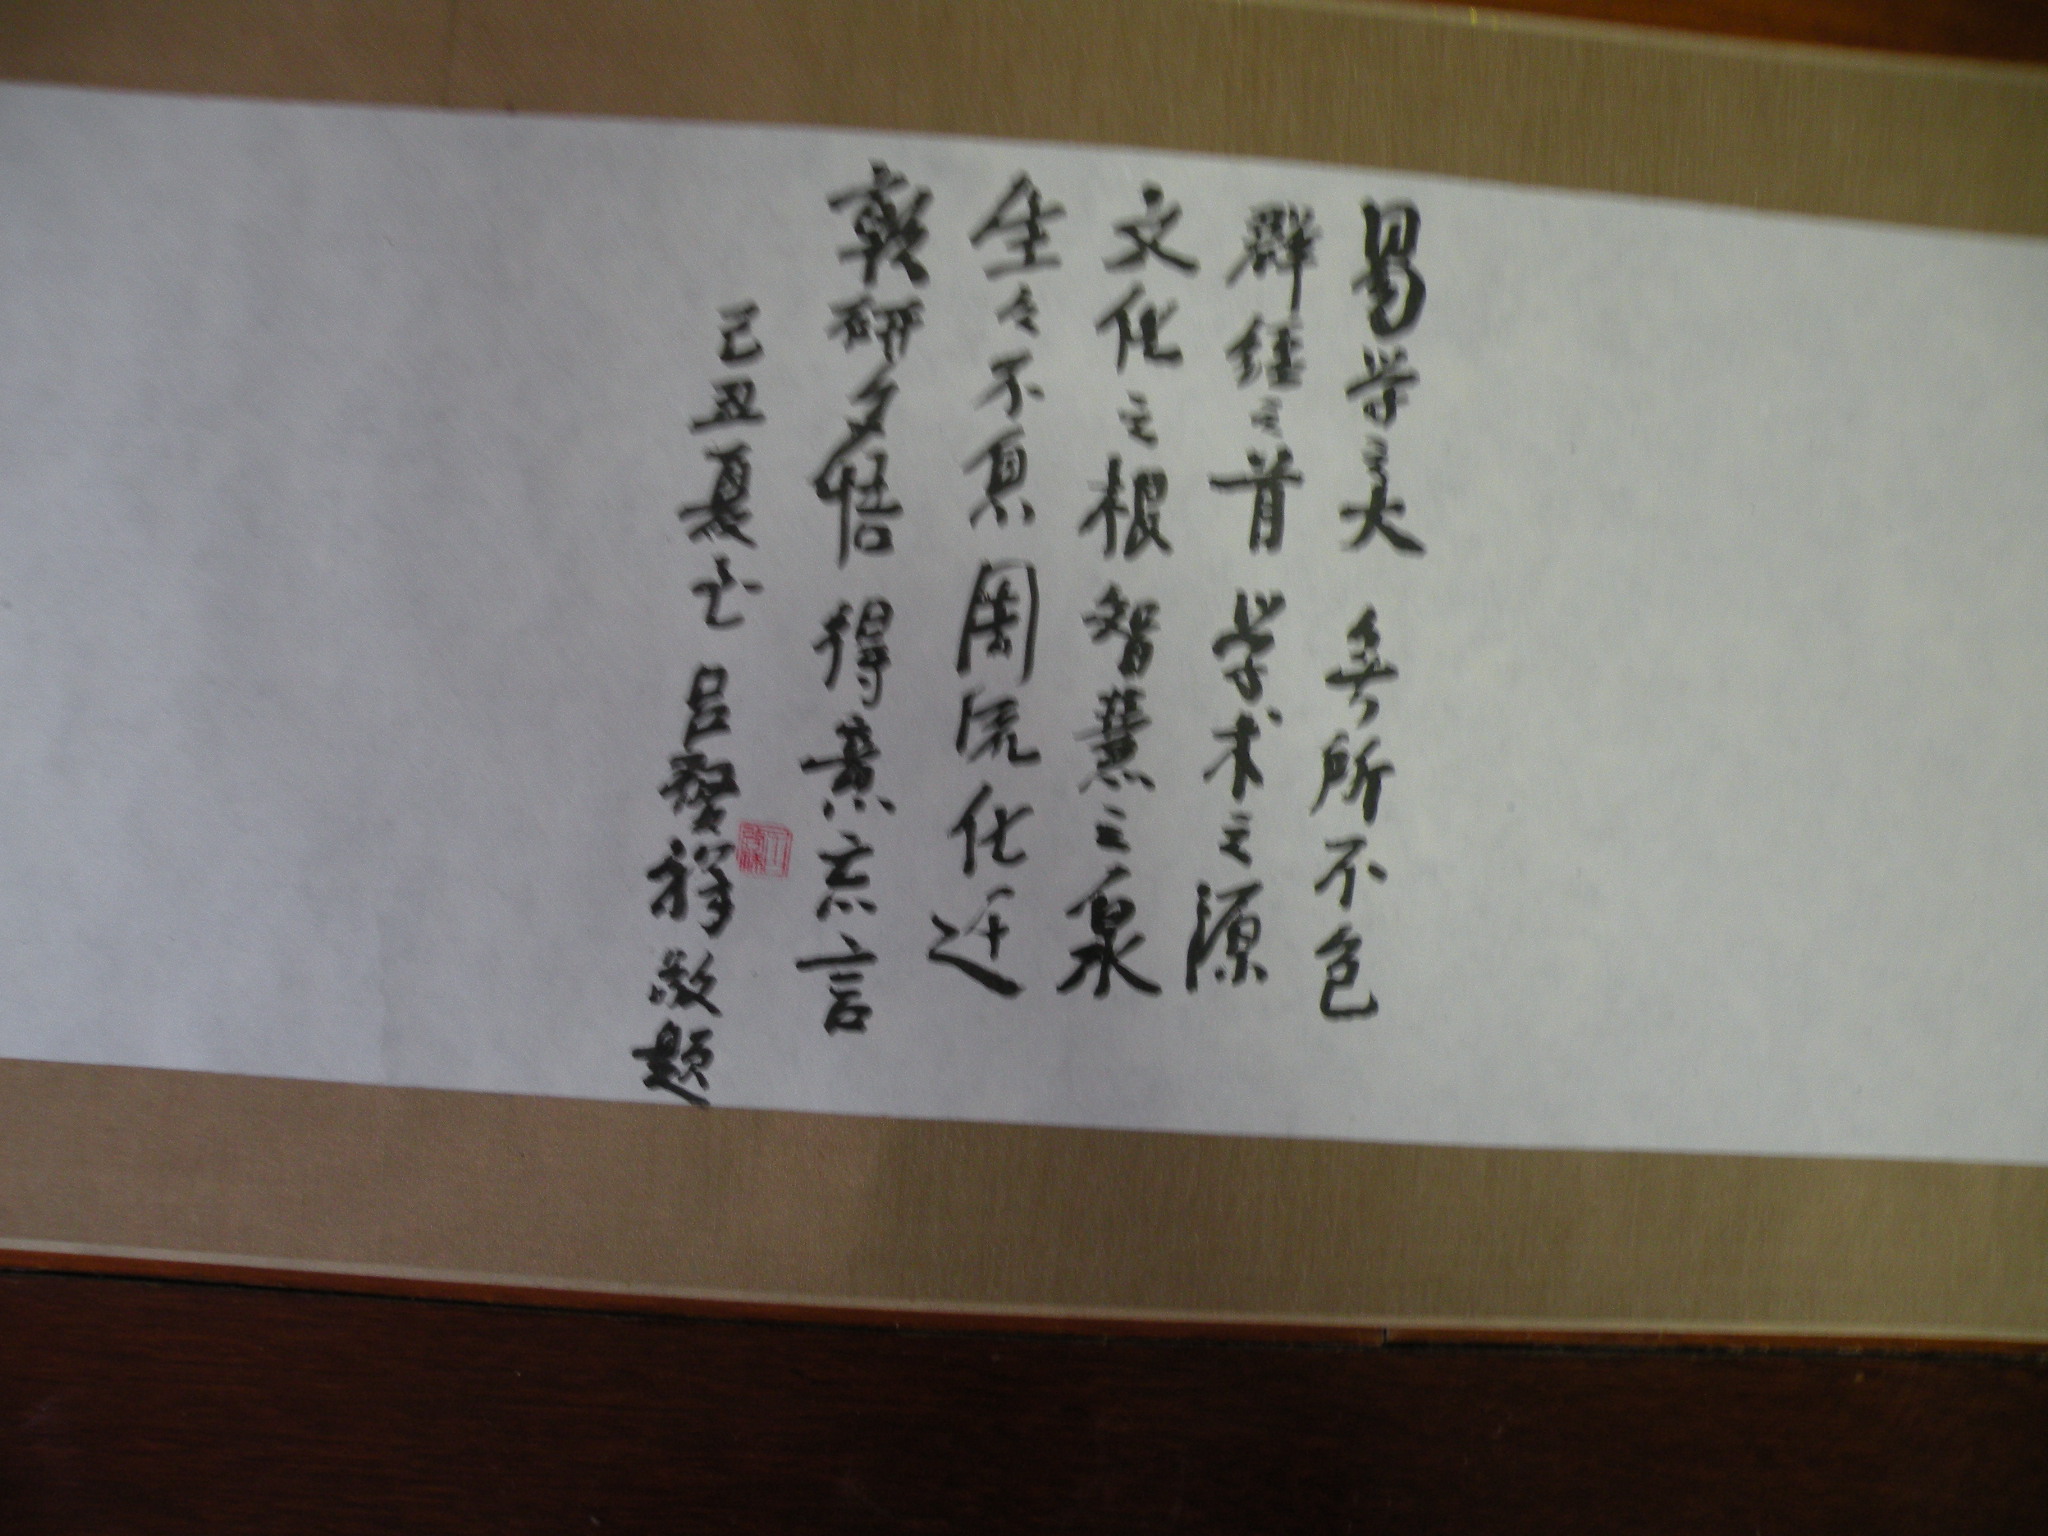 易学之大 無所不包
群经之首 学术之源
文化之根 智慧之泉
生々不息 周流化迁
研夕悟 得意忘言
己丑夏至 吕祥敬题